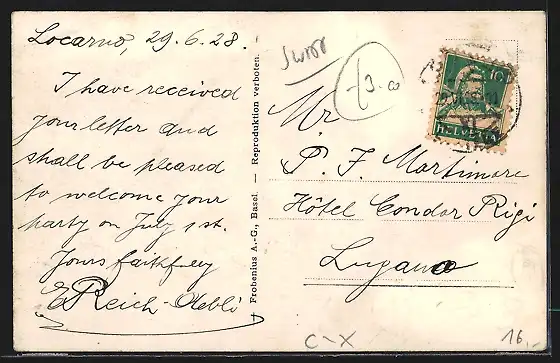 Locarno, 29.6.28.
I have received
your letter and
shall be pleased
to welcome your
party on July 1st.
Yours faithfully
E. Reich-Aebli
Frobenius A.-G., Basel. — Reproduktion verboten.
10
HELVETIA
Mr
P. F. Martimore
Hôtel Condor Rigi
Lugano
C-X
16.-